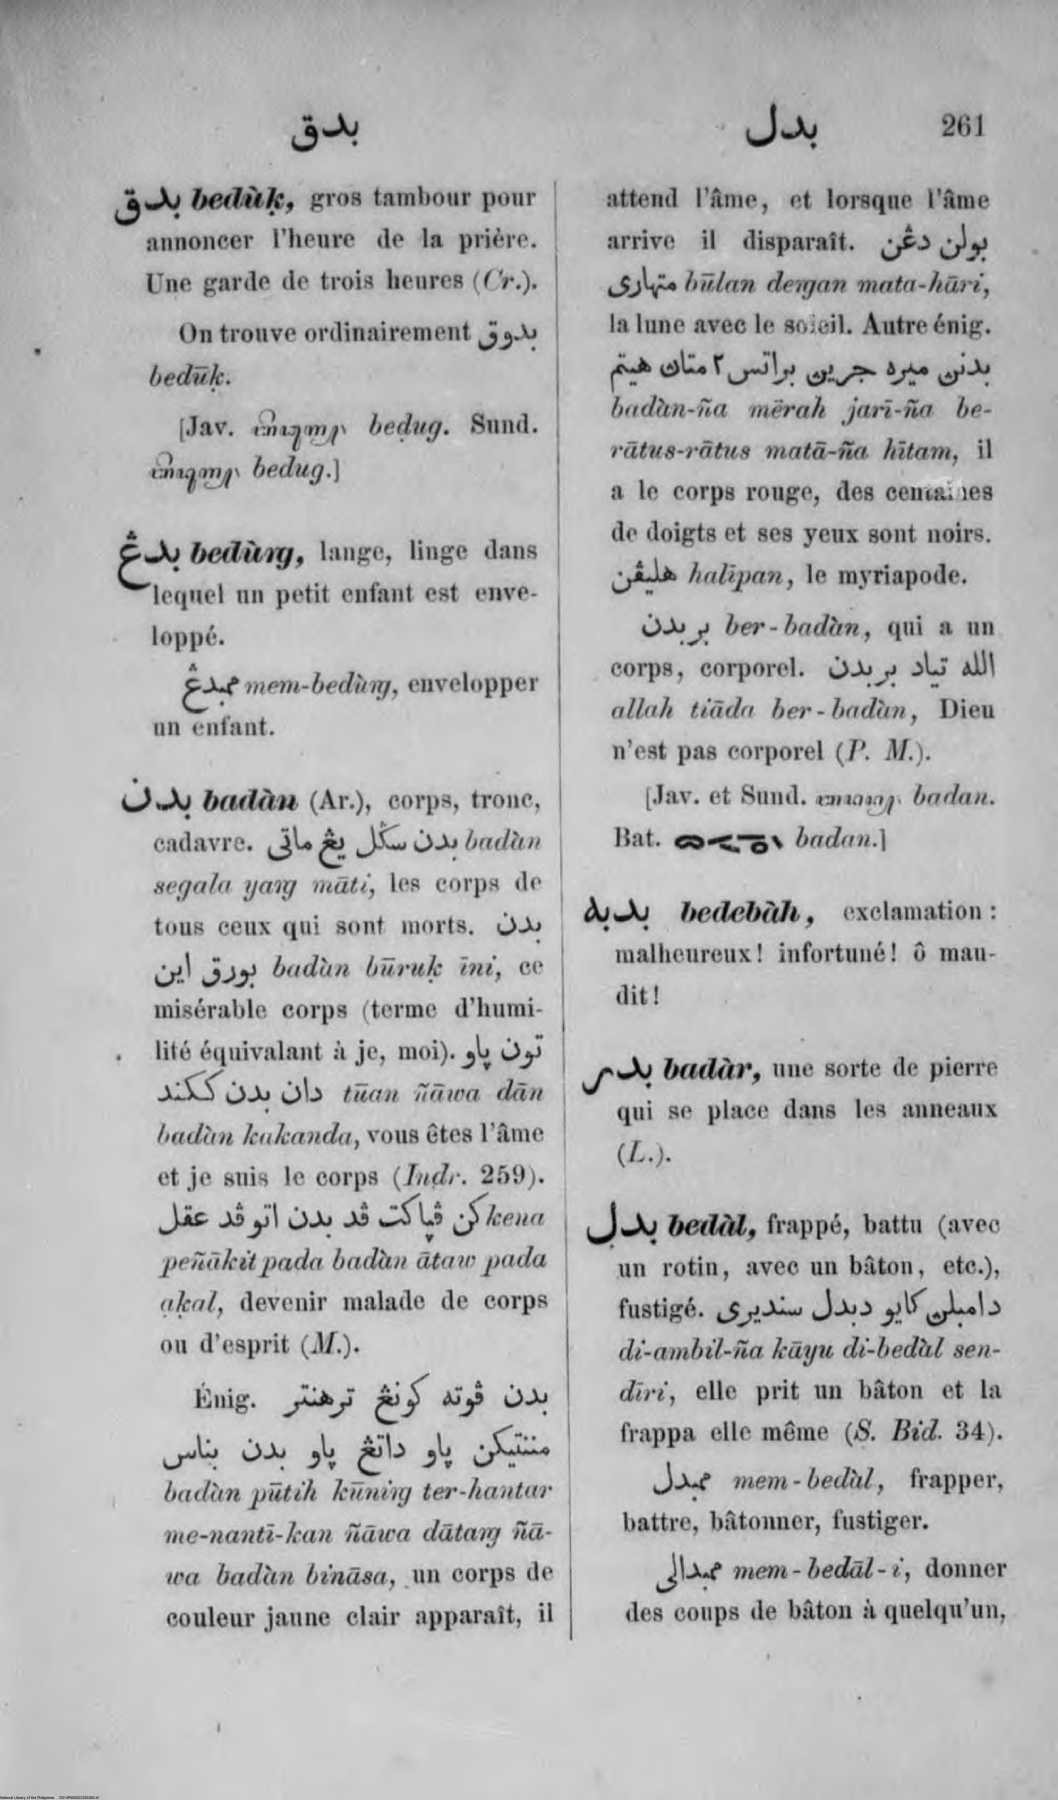 بدق
بدل
261
بدق bedùḳ, gros tambour pour
annoncer l'heure de la prière.
Une garde de trois heures (Cr.).
On trouve ordinairement بدوق
bedūḳ.
[Jav. beḍug. Sund.
bedug.]
بدڠ bedùrg, lange, linge dans
lequel un petit enfant est enve-
loppé.
ممبدڠ mem-bedùrg, envelopper
un enfant.
بدن badàn (Ar.), corps, tronc,
cadavre. بدن سڬل يڠ ماتى badàn
segala yarg māti, les corps de
tous ceux qui sont morts. بدن
بورق اين badàn būruḳ īni, ce
misérable corps (terme d'humi-
lité équivalant à je, moi). تون ڽاو
دان بدن ككند tūan ñāwa dān
badàn kakanda, vous êtes l'âme
et je suis le corps (Indr. 259).
كن ڤڽاكت ڤد بدن اتو ڤد عقل kena
peñākit pada badàn ātaw pada
aḳal, devenir malade de corps
ou d'esprit (M.).
Énig. بدن ڤوته كونڠ ترهنتر
مننتيكن ڽاو داتڠ ڽاو بدن بناس
badàn pūtih kūnirg ter-hantar
me-nantī-kan ñāwa dātarg ñā-
wa badàn bināsa, un corps de
couleur jaune clair apparaît, il
attend l'âme, et lorsque l'âme
arrive il disparaît. بولن دڠن
متهارى būlan dergan mata-hāri,
la lune avec le soleil. Autre énig.
بدنڽ ميره جريڽ براتس٢ متاڽ هيتم
badàn-ña mērah jarī-ña be-
rātus-rātus matā-ña hītam, il
a le corps rouge, des centaines
de doigts et ses yeux sont noirs.
هليڤن halīpan, le myriapode.
بربدن ber-badàn, qui a un
corps, corporel. الله تياد بربدن
allah tiāda ber-badàn, Dieu
n'est pas corporel (P. M.).
[Jav. et Sund. badan.
Bat. badan.]
بدبه bedebàh, exclamation :
malheureux! infortuné! ô mau-
dit!
بدر badàr, une sorte de pierre
qui se place dans les anneaux
(L.).
بدل bedàl, frappé, battu (avec
un rotin, avec un bâton, etc.),
fustigé. دامبلڽ كايو دبدل سنديرى
di-ambil-ña kāyu di-bedàl sen-
dīri, elle prit un bâton et la
frappa elle même (S. Bid. 34).
ممبدل mem-bedàl, frapper,
battre, bâtonner, fustiger.
ممبدالى mem-bedāl-i, donner
des coups de bâton à quelqu'un,